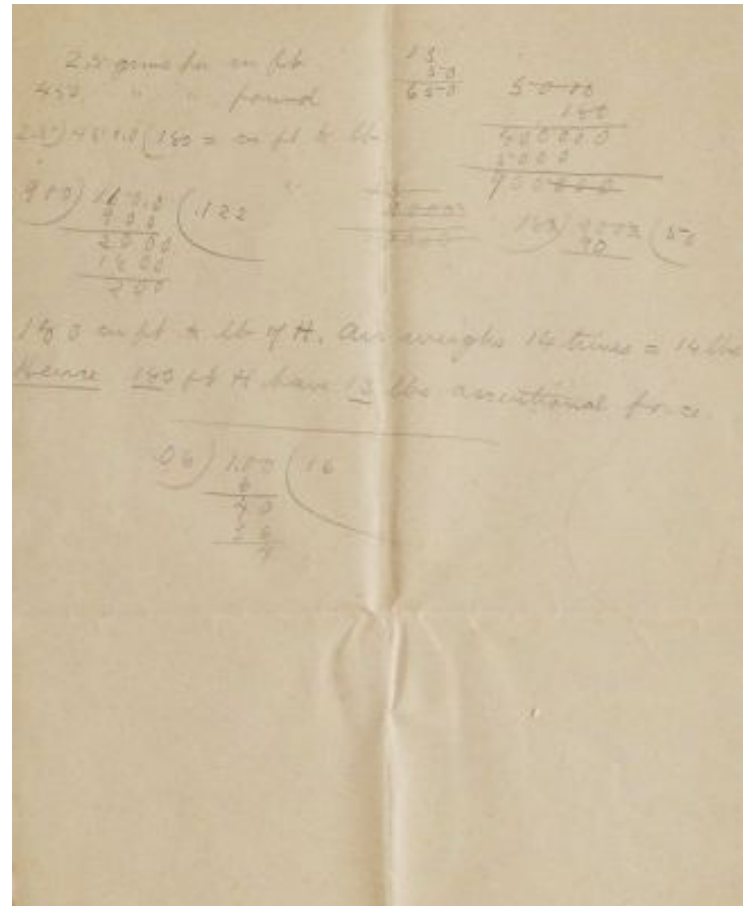 2.5 grms per cu ft
450 " " pound
2.5) 450.0 (180 = cu ft to lb
13
50
650
5000
180
400000
5000
900000
900) 1100.0 (.122
900
2000
1800
200
180) 9000 (50
90
180 cu ft to lb of H. Air weighs 14 times = 14 lbs
Hence 180 ft H have 13 lbs ascentional force.
.06) 1.00 (16
6
40
36
4